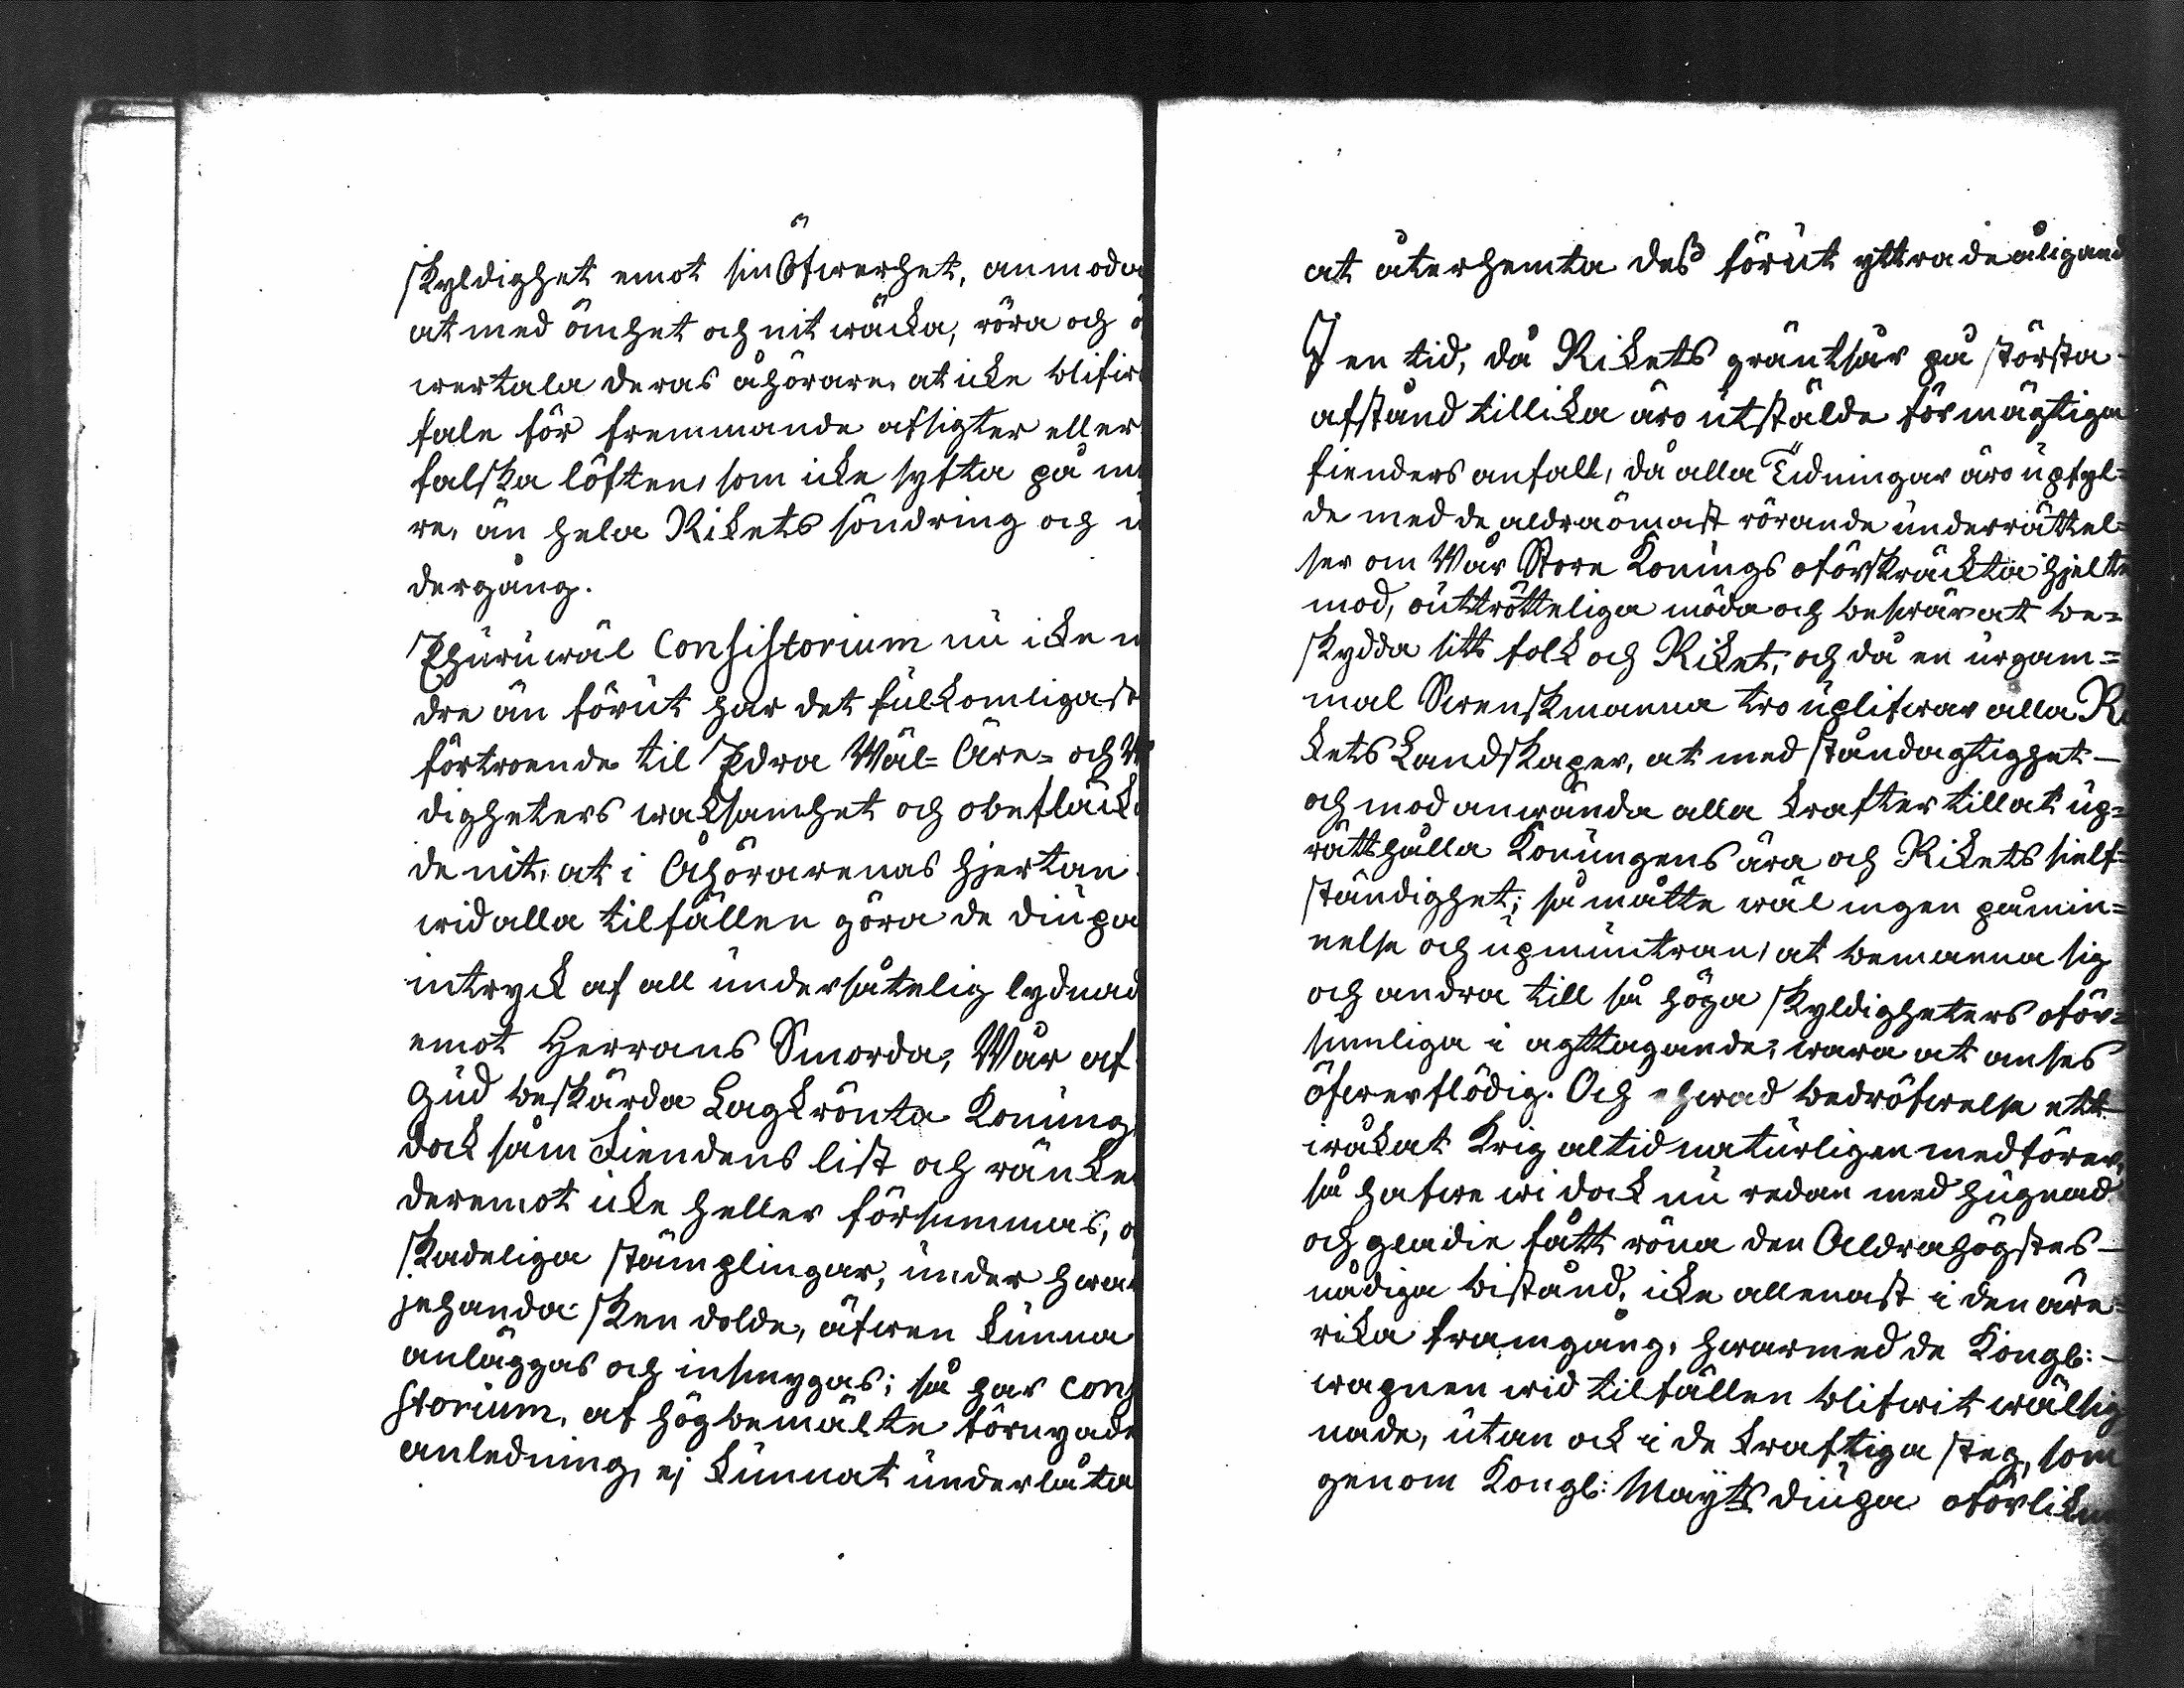 skyldighet emot sin Öfwerhet, anmoda
at med ömhet och nit wäcka, röra och ö
wertala deras åhörare, at icke blifwa
fale för fremmande afsigter eller
falska löften, som icke syfta på
re, än hela Rikets söndring och u
dergång.
Ehuruwäl Consistorium nu icke m
dre än förut har det fulkomligast
förtroende til Edra Wäl- Äre- och W
digheters waksamhet och obefläcka
de nit, at i Åhörarenas hjertan
wid alla tilfällen göra de diupa
intryck af all undersåtelig lydnad
emot Herrans Smorda, Wår af
Gud beskärda Lagkrönta Konung,
dock såm Fiendens list och ränker
deremot icke heller försummas, o
skadeliga stämplingar, under hwar
jehanda sken dolde, äfwen kunna
anläggas och insmygas; så har Consi
storium, af högbemälte förnyade
anledning, ej kunnat underlåta
at återhemta deß förut yttrade åligand
I en tid, då Rikets gräntsår på största
afstånd tillika äro utstälde för mägtiga
fienders anfall, då alla Tidningar äro upfyl=
de med de aldraömast rörande underrättel=
ser om Wår Store Konungs oförskräckta hjelte
mod, outtrötteliga möda och beswär at be=
skydda sitt folk och Riket, och då en urgam=
mal Swenskmanna tro uplifwar alla Ri
kets Landskaper, at med ståndagtighet
och mod anwända alla krafter till at up=
rätthålla Konungens ära och Rikets sielf=
ständighet; så måtte wäl ingen påmin=
nelse och upmuntran, at bemanna sig
och andra till så höga skyldigheters oför=
sumliga i agttagande, wara at anses
öfwerflödig. Och ehwad bedröfwelse ett
iråkat Krig altid naturligen medförer,
så hafwe wi dock nu redan med hugnad
och gladie fått röna den Aldrahögstes
nådiga bistånd, icke allenast i den äre=
rika framgång, hwarmed de Kongl:
wapnen wid tilfällen blifwit wälsig
nade, utan ock i de kraftiga steg, som
genom Kongl: Mayts diupa oförlikn